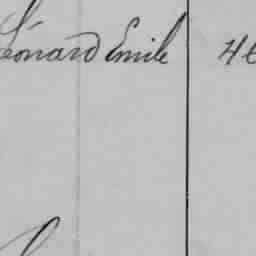 Léonard Emile 46